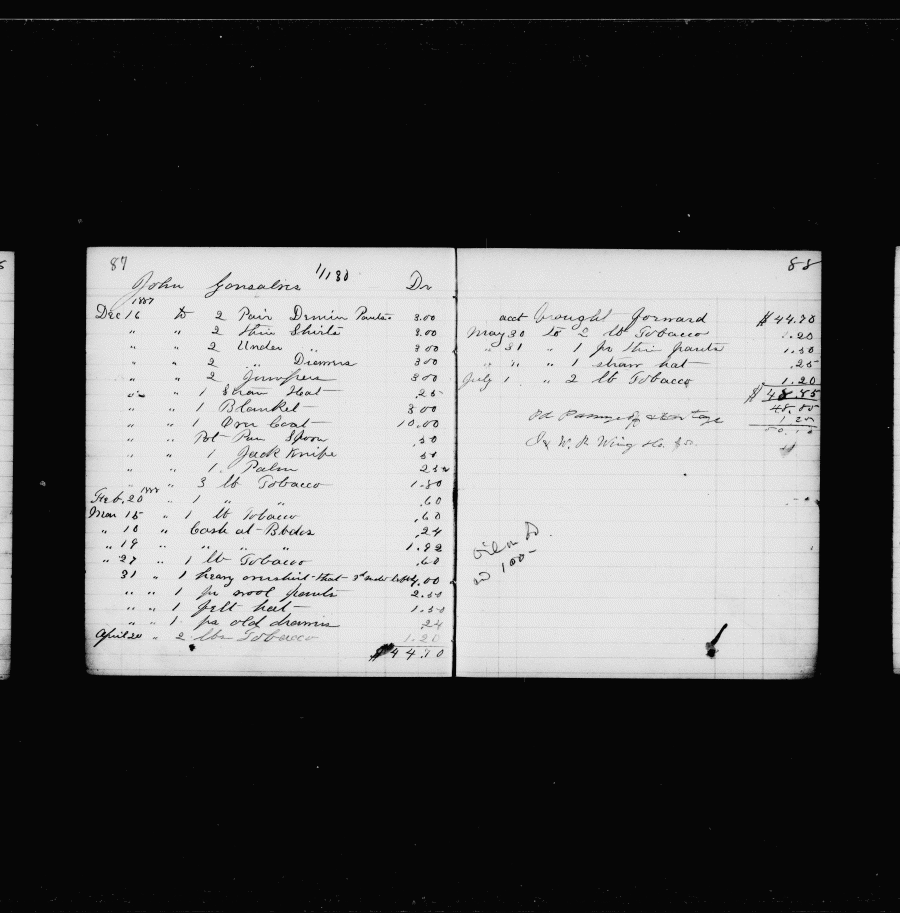 87
John Gonsalves 1/180 Dr
1887
Dec 16 to 2 Pair Denim Pants 3.00
" " 2 thin Shirts 2.00
" " 2 Under " 3 00
" " 2 " Drawers 3 00
" " 2 Jumpers 3 00
" " 1 Straw Hat .25
" " 1 Blanket 3 00
" " 1 Over Coat 10.00
" " Pot Pan Spoon .50
" " 1 Jack Knife 50
" " 1 Palm 25
" " 3 lb Tobacco 1.80
Feb. 20 1888 " 1 " " .60
Mar 15 " 1 lb Tobacco .60
" 18 " Cash at Bbdos .24
" 19 " " " " 1.92
" 27 " 1 lb Tobacco .60
31 " 1 heavy overshirt that 2.00
" " " 1 pr wool pants 2.50
" " " 1 felt hat 1.50
" " " 1 pr old drawers .24
April 20 " 2 lbs Tobacco 1.20
$44.70
88
acct brought forward $44.70
May 30 to 2 lb Tobacco 1.20
" 31 " 1 pr thin pants 1.50
" " " 1 straw hat .25
July 1 " 2 lb Tobacco 1.20
$48.85
48.85
1.25
50.10
J & W. R. Wing & Co.
100